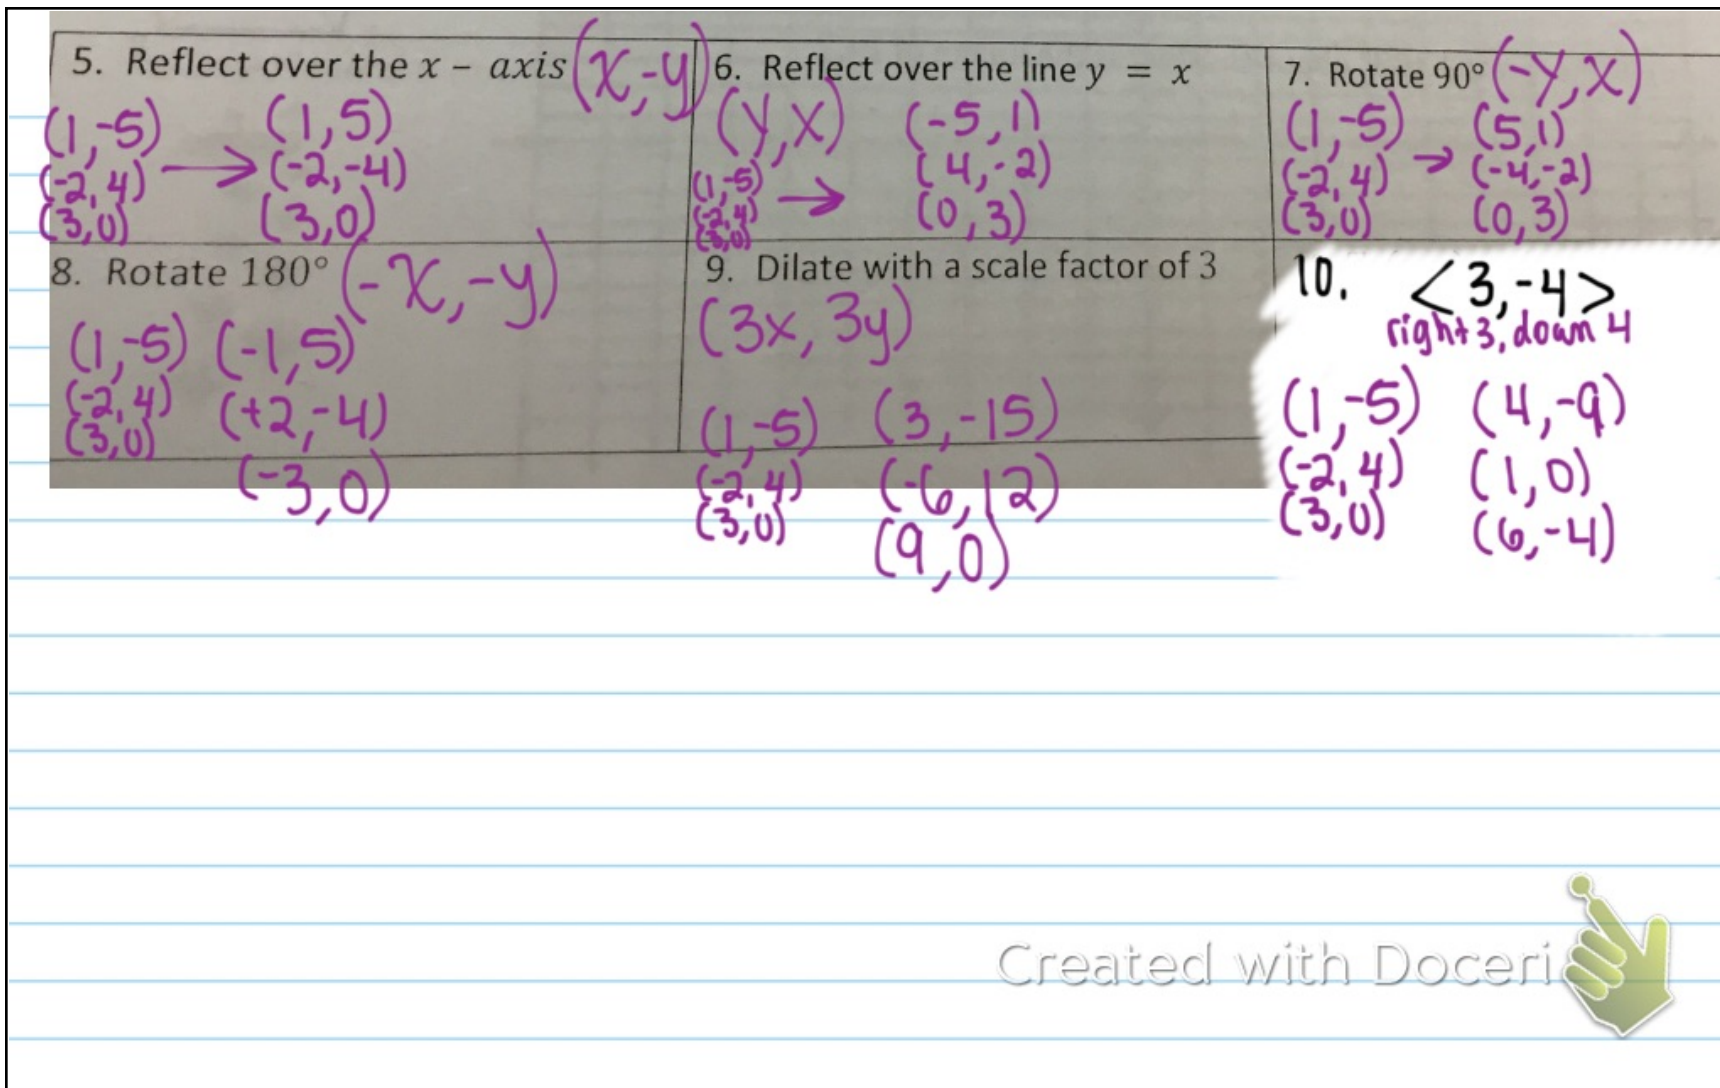 5. Reflect over the x – axis (x,-y)
(1,-5) (1,5)
(-2,4) → (-2,-4)
(3,0) (3,0)
6. Reflect over the line y = x
(y,x) (-5,1)
(1,-5) (4,-2)
(-2,4) → (0,3)
(3,0)
7. Rotate 90° (-y,x)
(1,-5) (5,1)
(-2,4) → (-4,-2)
(3,0) (0,3)
8. Rotate 180° (-x,-y)
(1,-5) (-1,5)
(-2,4) (+2,-4)
(3,0) (-3,0)
9. Dilate with a scale factor of 3
(3x, 3y)
(1,-5) (3,-15)
(-2,4) (-6,12)
(3,0) (9,0)
10. <3,-4>
right 3, down 4
(1,-5) (4,-9)
(-2,4) (1,0)
(3,0) (6,-4)
Created with Doceri